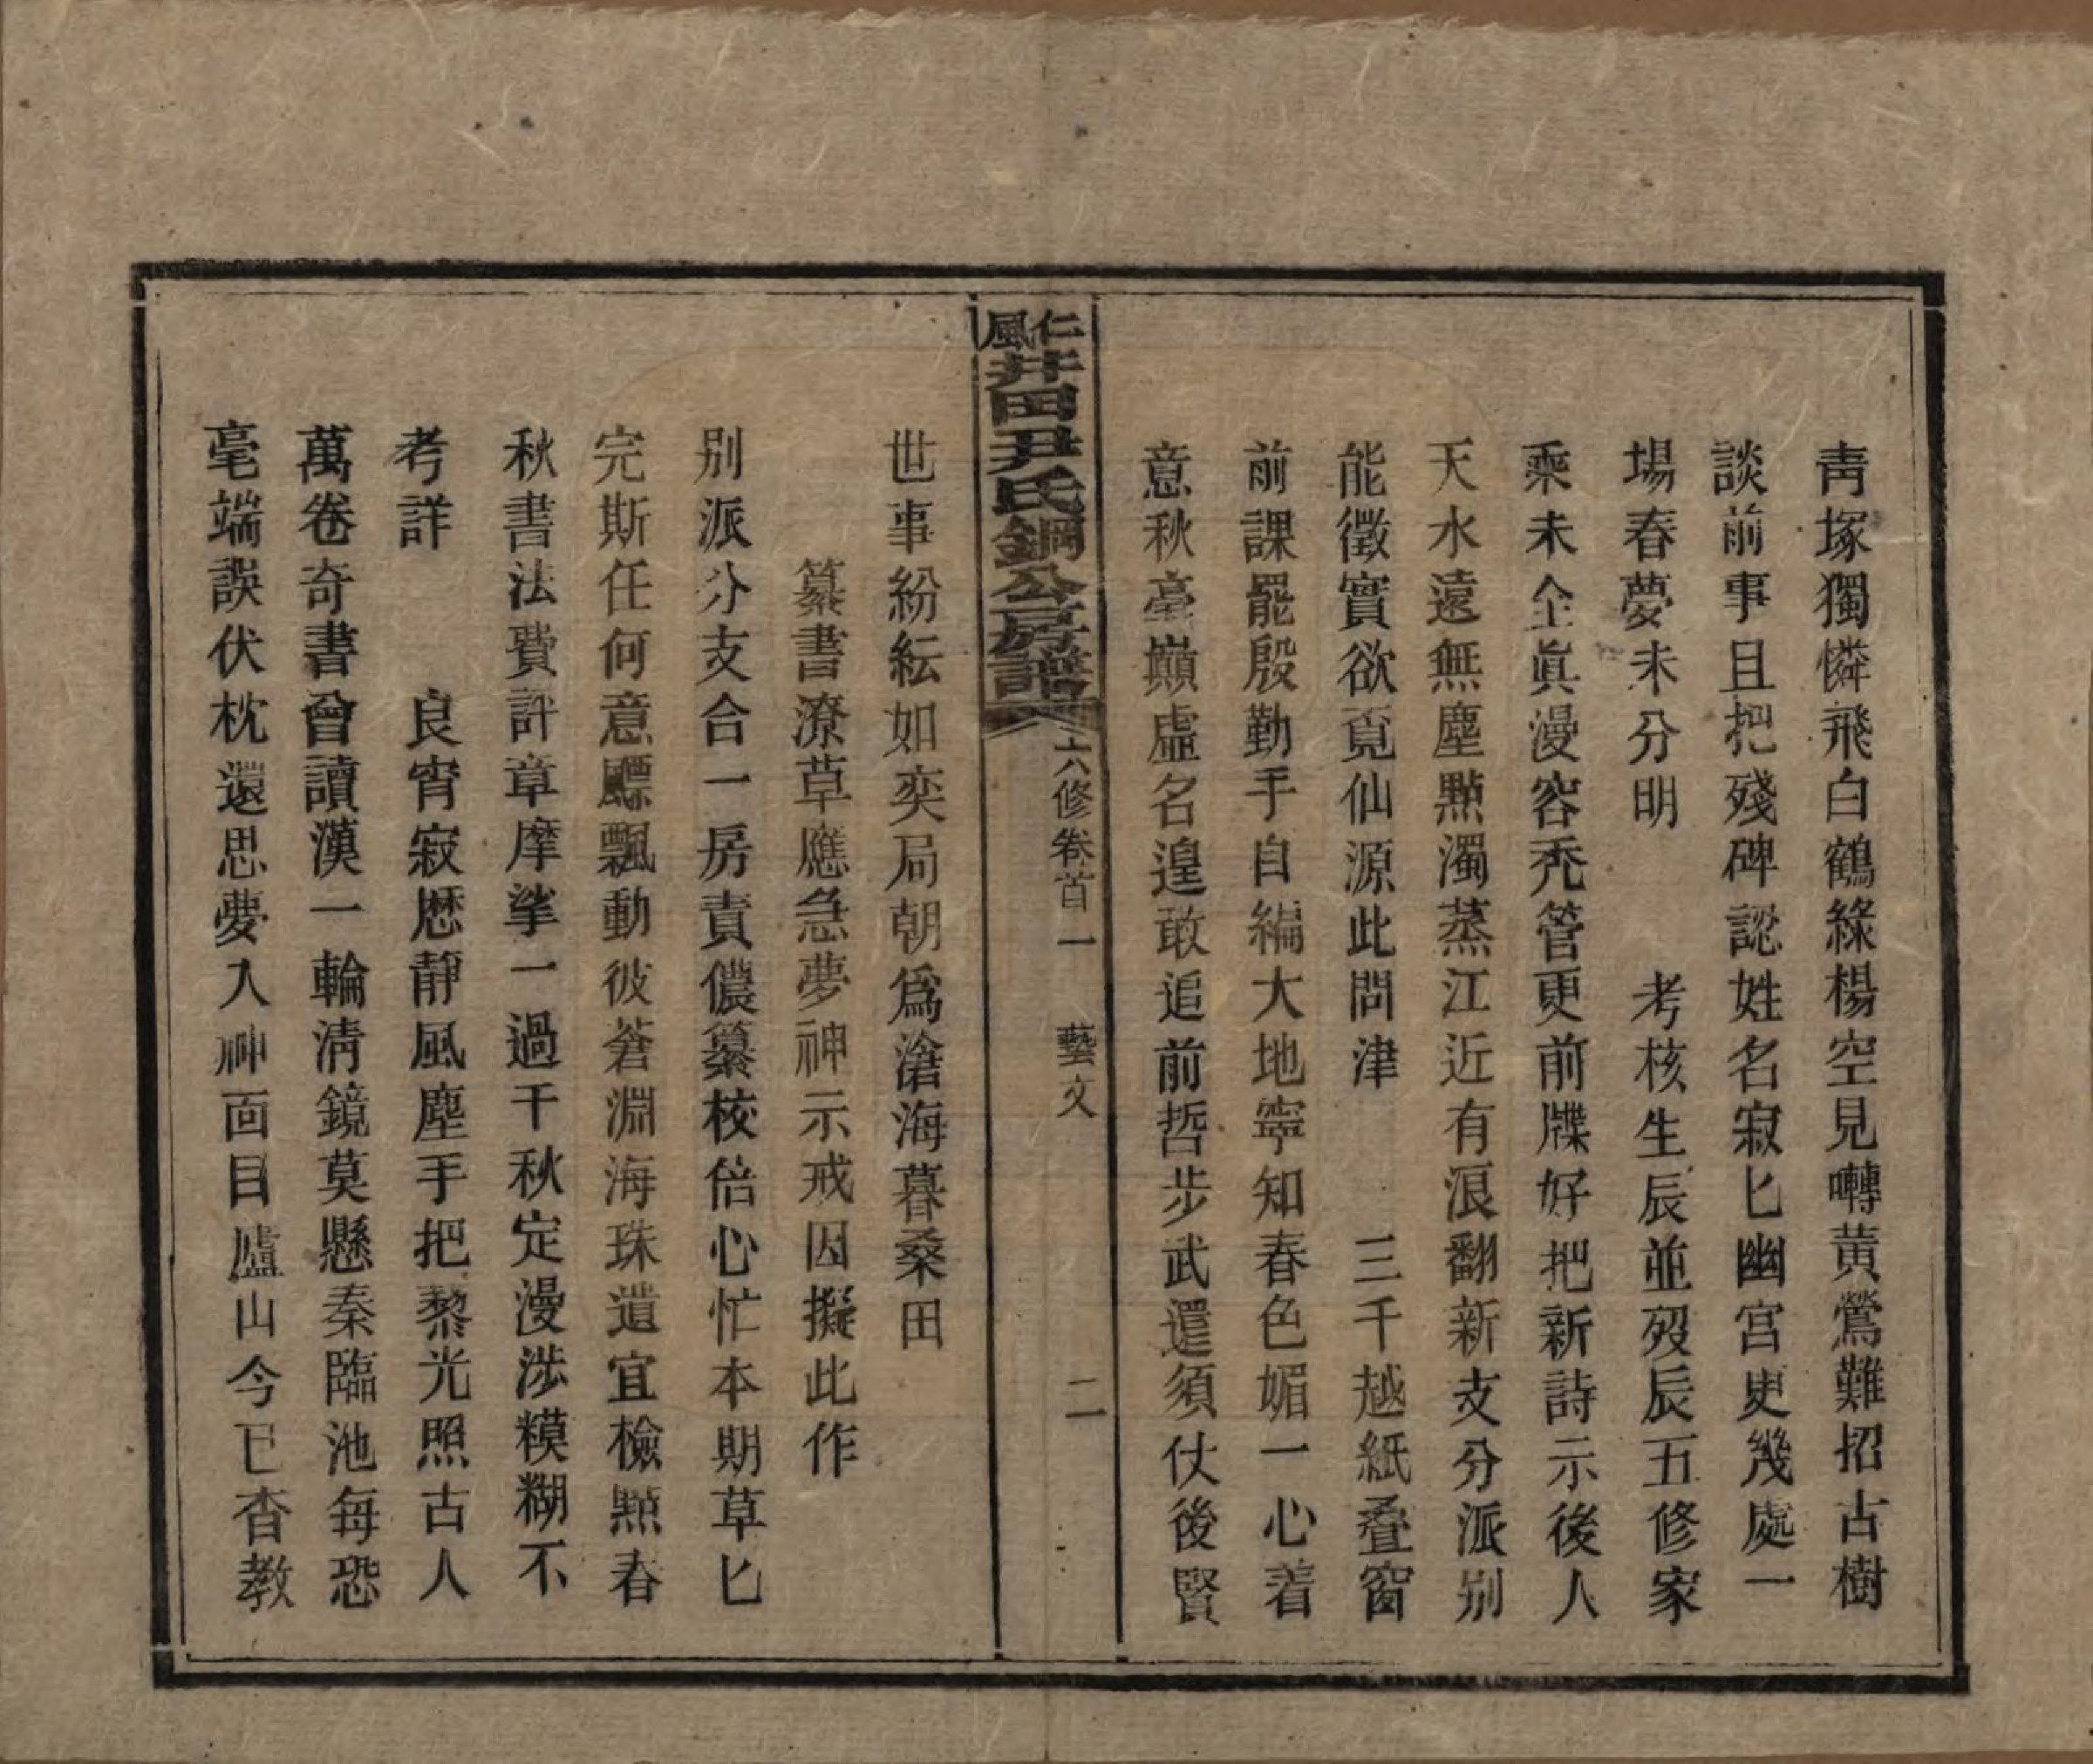 靑塚獨憐飛白鶴綠楊空見囀黃鶯難招古樹
談前事且把殘碑認姓名寂匕幽宮更幾處一
場春夢未分明　　考核生辰並歿辰五修家
乘未全眞漫容禿管更前牒好把新詩示後人
天水遠無塵點濁蒸江近有浪翻新支分派别
能徵實欲覓仙源此問津　　三千越紙叠窗
前課罷殷勤手自編大地寧知春色媚一心着
意秋毫巔虛名遑敢追前哲步武還須仗後賢
仁風井田尹氏錮公房譜　六修卷首一　藝文　二
世事紛紜如奕局朝爲滄海暮桑田
纂書潦草應急夢神示戒因擬此作
别派分支合一房責儂纂校倍心忙本期草匕
完斯任何意飃飄動彼蒼淵海珠遺宜檢點春
秋書法費評章摩挲一過千秋定漫涉糢糊不
考詳　　良宵寂歷靜風塵手把藜光照古人
萬卷奇書曾讀漢一輪淸鏡莫懸秦臨池每恐
毫端誤伏枕還思夢入神面目廬山今已杳教